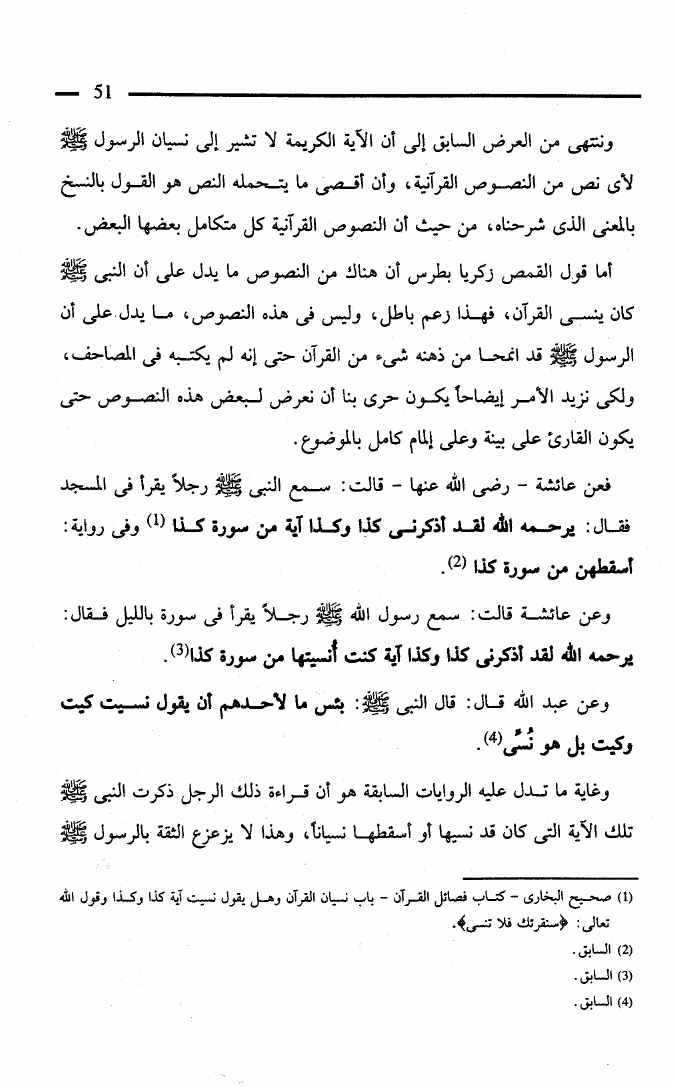 51
وننتهى من العرض السابق إلى أن الآية الكريمة لا تشير إلى نسيان الرسول ﷺ
لأى نص من النصوص القرآنية، وأن أقصى ما يتحمله النص هو القول بالنسخ
بالمعنى الذى شرحناه، من حيث أن النصوص القرآنية كل متكامل بعضها البعض.
أما قول القمص زكريا بطرس أن هناك من النصوص ما يدل على أن النبى ﷺ
كان ينسى القرآن، فهذا زعم باطل، وليس فى هذه النصوص، ما يدل على أن
الرسول ﷺ قد انمحا من ذهنه شىء من القرآن حتى إنه لم يكتبه فى المصاحف،
ولكى نزيد الأمر إيضاحاً يكون حرى بنا أن نعرض لبعض هذه النصوص حتى
يكون القارئ على بينة وعلى إلمام كامل بالموضوع.
فعن عائشة - رضى الله عنها - قالت: سمع النبى ﷺ رجلاً يقرأ فى المسجد
فقال: يرحمه الله لقد أذكرنى كذا وكذا آية من سورة كذا (1) وفى رواية:
أسقطهن من سورة كذا (2).
وعن عائشة قالت: سمع رسول الله ﷺ رجلاً يقرأ فى سورة بالليل فقال:
يرحمه الله لقد أذكرنى كذا وكذا آية كنت أُنسيتها من سورة كذا(3).
وعن عبد الله قال: قال النبى ﷺ: بئس ما لأحدهم أن يقول نسيت كيت
وكيت بل هو نُسِّى(4).
وغاية ما تدل عليه الروايات السابقة هو أن قراءة ذلك الرجل ذكرت النبى ﷺ
تلك الآية التى كان قد نسيها أو أسقطها نسياناً، وهذا لا يزعزع الثقة بالرسول ﷺ
(1) صحيح البخارى - كتاب فصائل القرآن - باب نسيان القرآن وهل يقول نسيت آية كذا وكذا وقول الله
تعالى: ﴿سنقرئك فلا تنسى﴾.
(2) السابق.
(3) السابق.
(4) السابق.